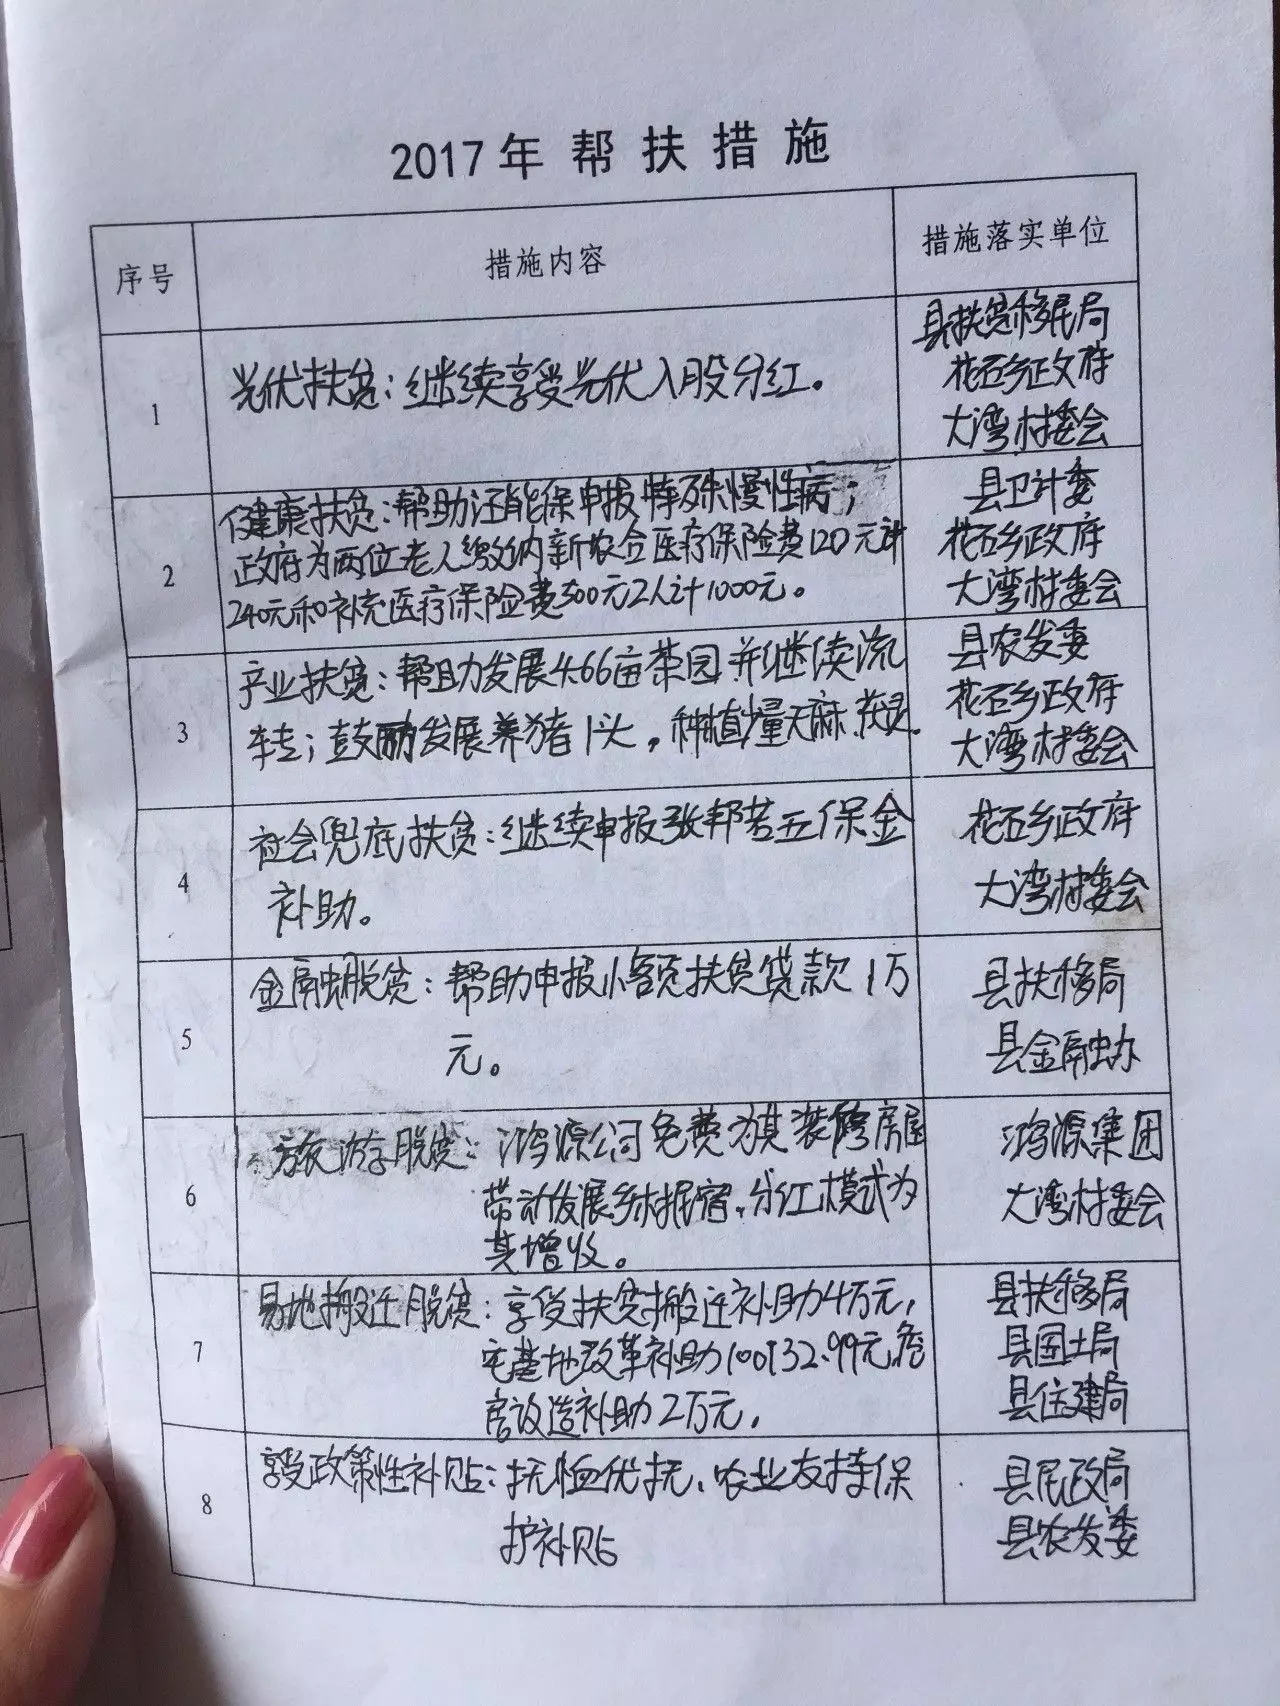 2017年帮扶措施
序号
措施内容
措施落实单位
1
光伏扶贫：继续享受光伏入股分红。
县扶贫移民局
花石乡政府
大湾村委会
2
健康扶贫：帮助汪能保申报特殊慢性病；
政府为两位老人缴纳新农合医疗保险费120元计
240元和补充医疗保险费500元2人计1000元。
县卫计委
花石乡政府
大湾村委会
3
产业扶贫：帮助发展4.66亩茶园并继续流
转；鼓励发展养猪1头，种植少量天麻、茯苓。
县农发委
花石乡政府
大湾村委会
4
社会兜底扶贫：继续申报张邦若五保金
补助。
花石乡政府
大湾村委会
5
金融脱贫：帮助申报小额扶贫贷款1万
元。
县扶移局
县金融办
6
旅游脱贫：鸿源公司免费为其装修房屋
带动发展乡村民宿，分红模式为
其增收。
鸿源集团
大湾村委会
7
易地搬迁脱贫：享受扶贫搬迁补助4万元，
宅基地改革补助100132.99元，危
房改造补助2万元。
县扶移局
县国土局
县住建局
8
享受政策性补贴：抚恤优抚、农业支持保
护补贴
县民政局
县农发委